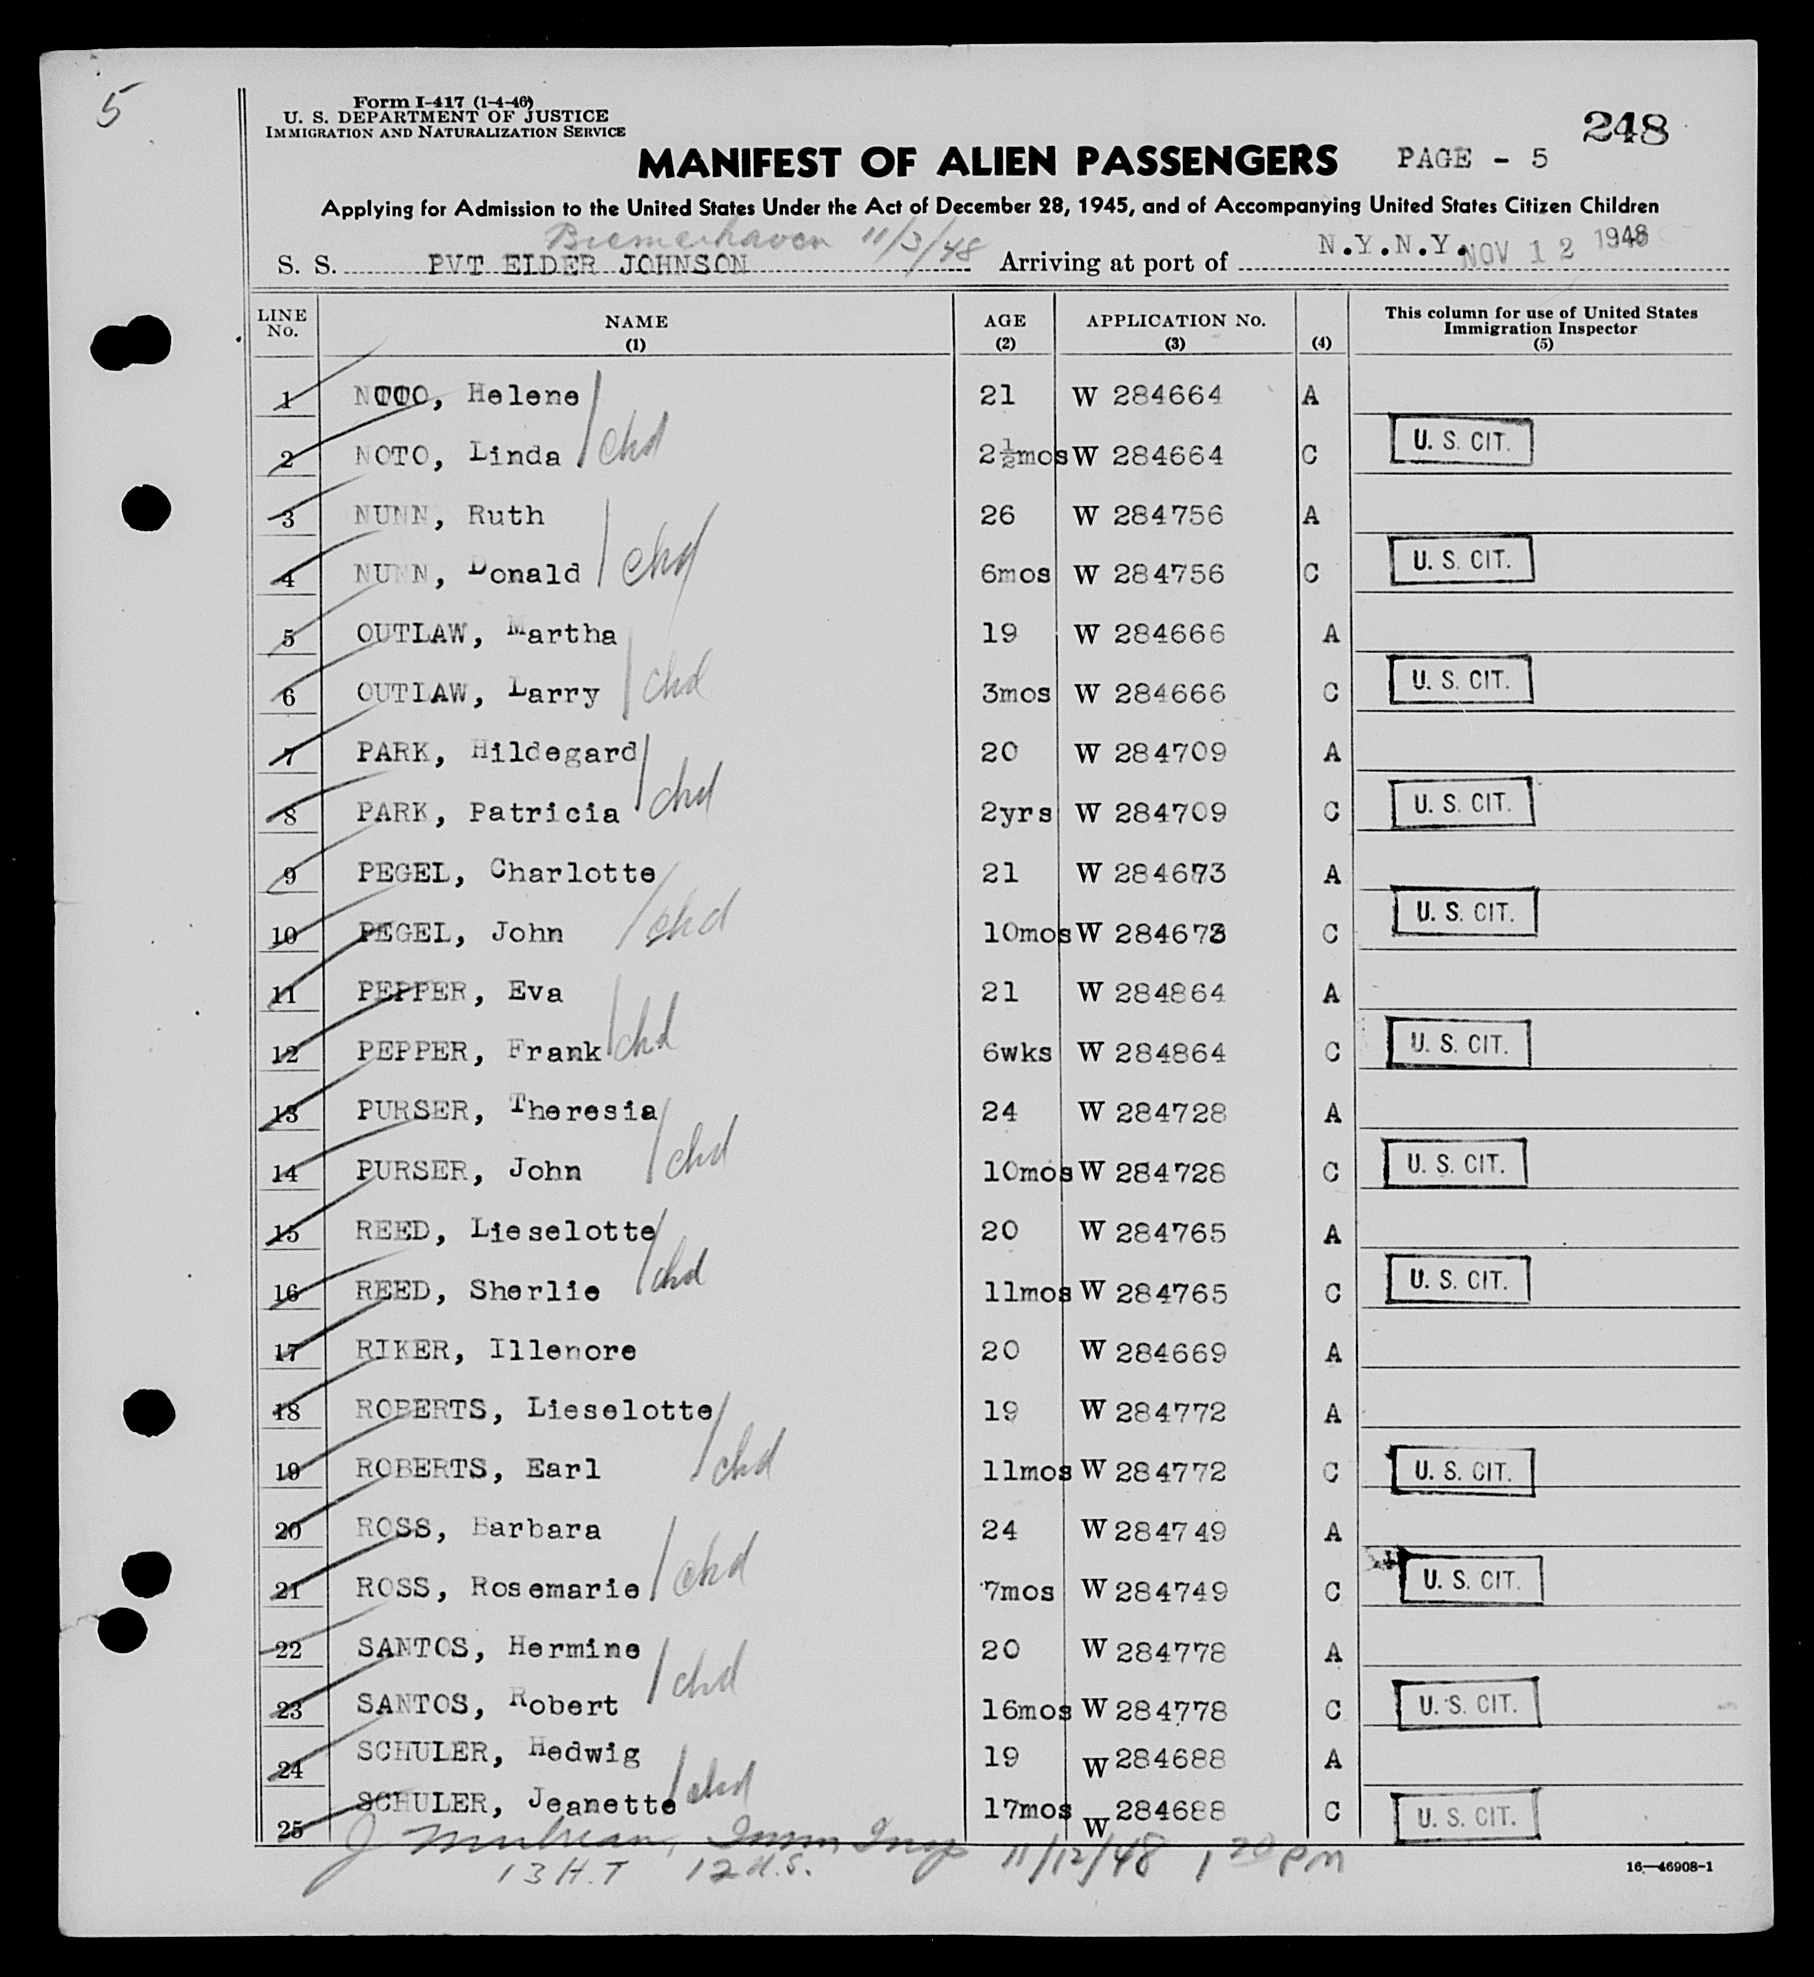 5
Form I-417 (1-4-46)
U. S. DEPARTMENT OF JUSTICE
IMMIGRATION AND NATURALIZATION SERVICE
248
MANIFEST OF ALIEN PASSENGERS PAGE - 5
Applying for Admission to the United States Under the Act of December 28, 1945, and of Accompanying United States Citizen Children
Bremerhaven 11/3/48
S. S. PVT ELDER JOHNSON Arriving at port of N.Y.N.Y. NOV 12 1948
LINE No. NAME (1) AGE (2) APPLICATION No. (3) (4) This column for use of United States Immigration Inspector (5)
1 NOTO, Helene 21 W 284664 A
2 NOTO, Linda chd 2½mos W 284664 C U. S. CIT.
3 NUNN, Ruth 26 W 284756 A
4 NUNN, Donald chd 6mos W 284756 C U. S. CIT.
5 OUTLAW, Martha 19 W 284666 A
6 OUTLAW, Larry chd 3mos W 284666 C U. S. CIT.
7 PARK, Hildegard 20 W 284709 A
8 PARK, Patricia chd 2yrs W 284709 C U. S. CIT.
9 PEGEL, Charlotte 21 W 284673 A
10 PEGEL, John chd 10mos W 284673 C U. S. CIT.
11 PEPPER, Eva 21 W 284864 A
12 PEPPER, Frank chd 6wks W 284864 C U. S. CIT.
13 PURSER, Theresia 24 W 284728 A
14 PURSER, John chd 10mos W 284728 C U. S. CIT.
15 REED, Lieselotte 20 W 284765 A
16 REED, Sherlie chd 11mos W 284765 C U. S. CIT.
17 RIKER, Illenore 20 W 284669 A
18 ROBERTS, Lieselotte 19 W 284772 A
19 ROBERTS, Earl chd 11mos W 284772 C U. S. CIT.
20 ROSS, Barbara 24 W 284749 A
21 ROSS, Rosemarie chd 7mos W 284749 C U. S. CIT.
22 SANTOS, Hermine 20 W 284778 A
23 SANTOS, Robert chd 16mos W 284778 C U. S. CIT.
24 SCHULER, Hedwig 19 W 284688 A
25 SCHULER, Jeanette chd 17mos W 284688 C U. S. CIT.
J Imm. Insp 11/12/48 1 PM
13 H.T 12 U.S.
16—46908-1